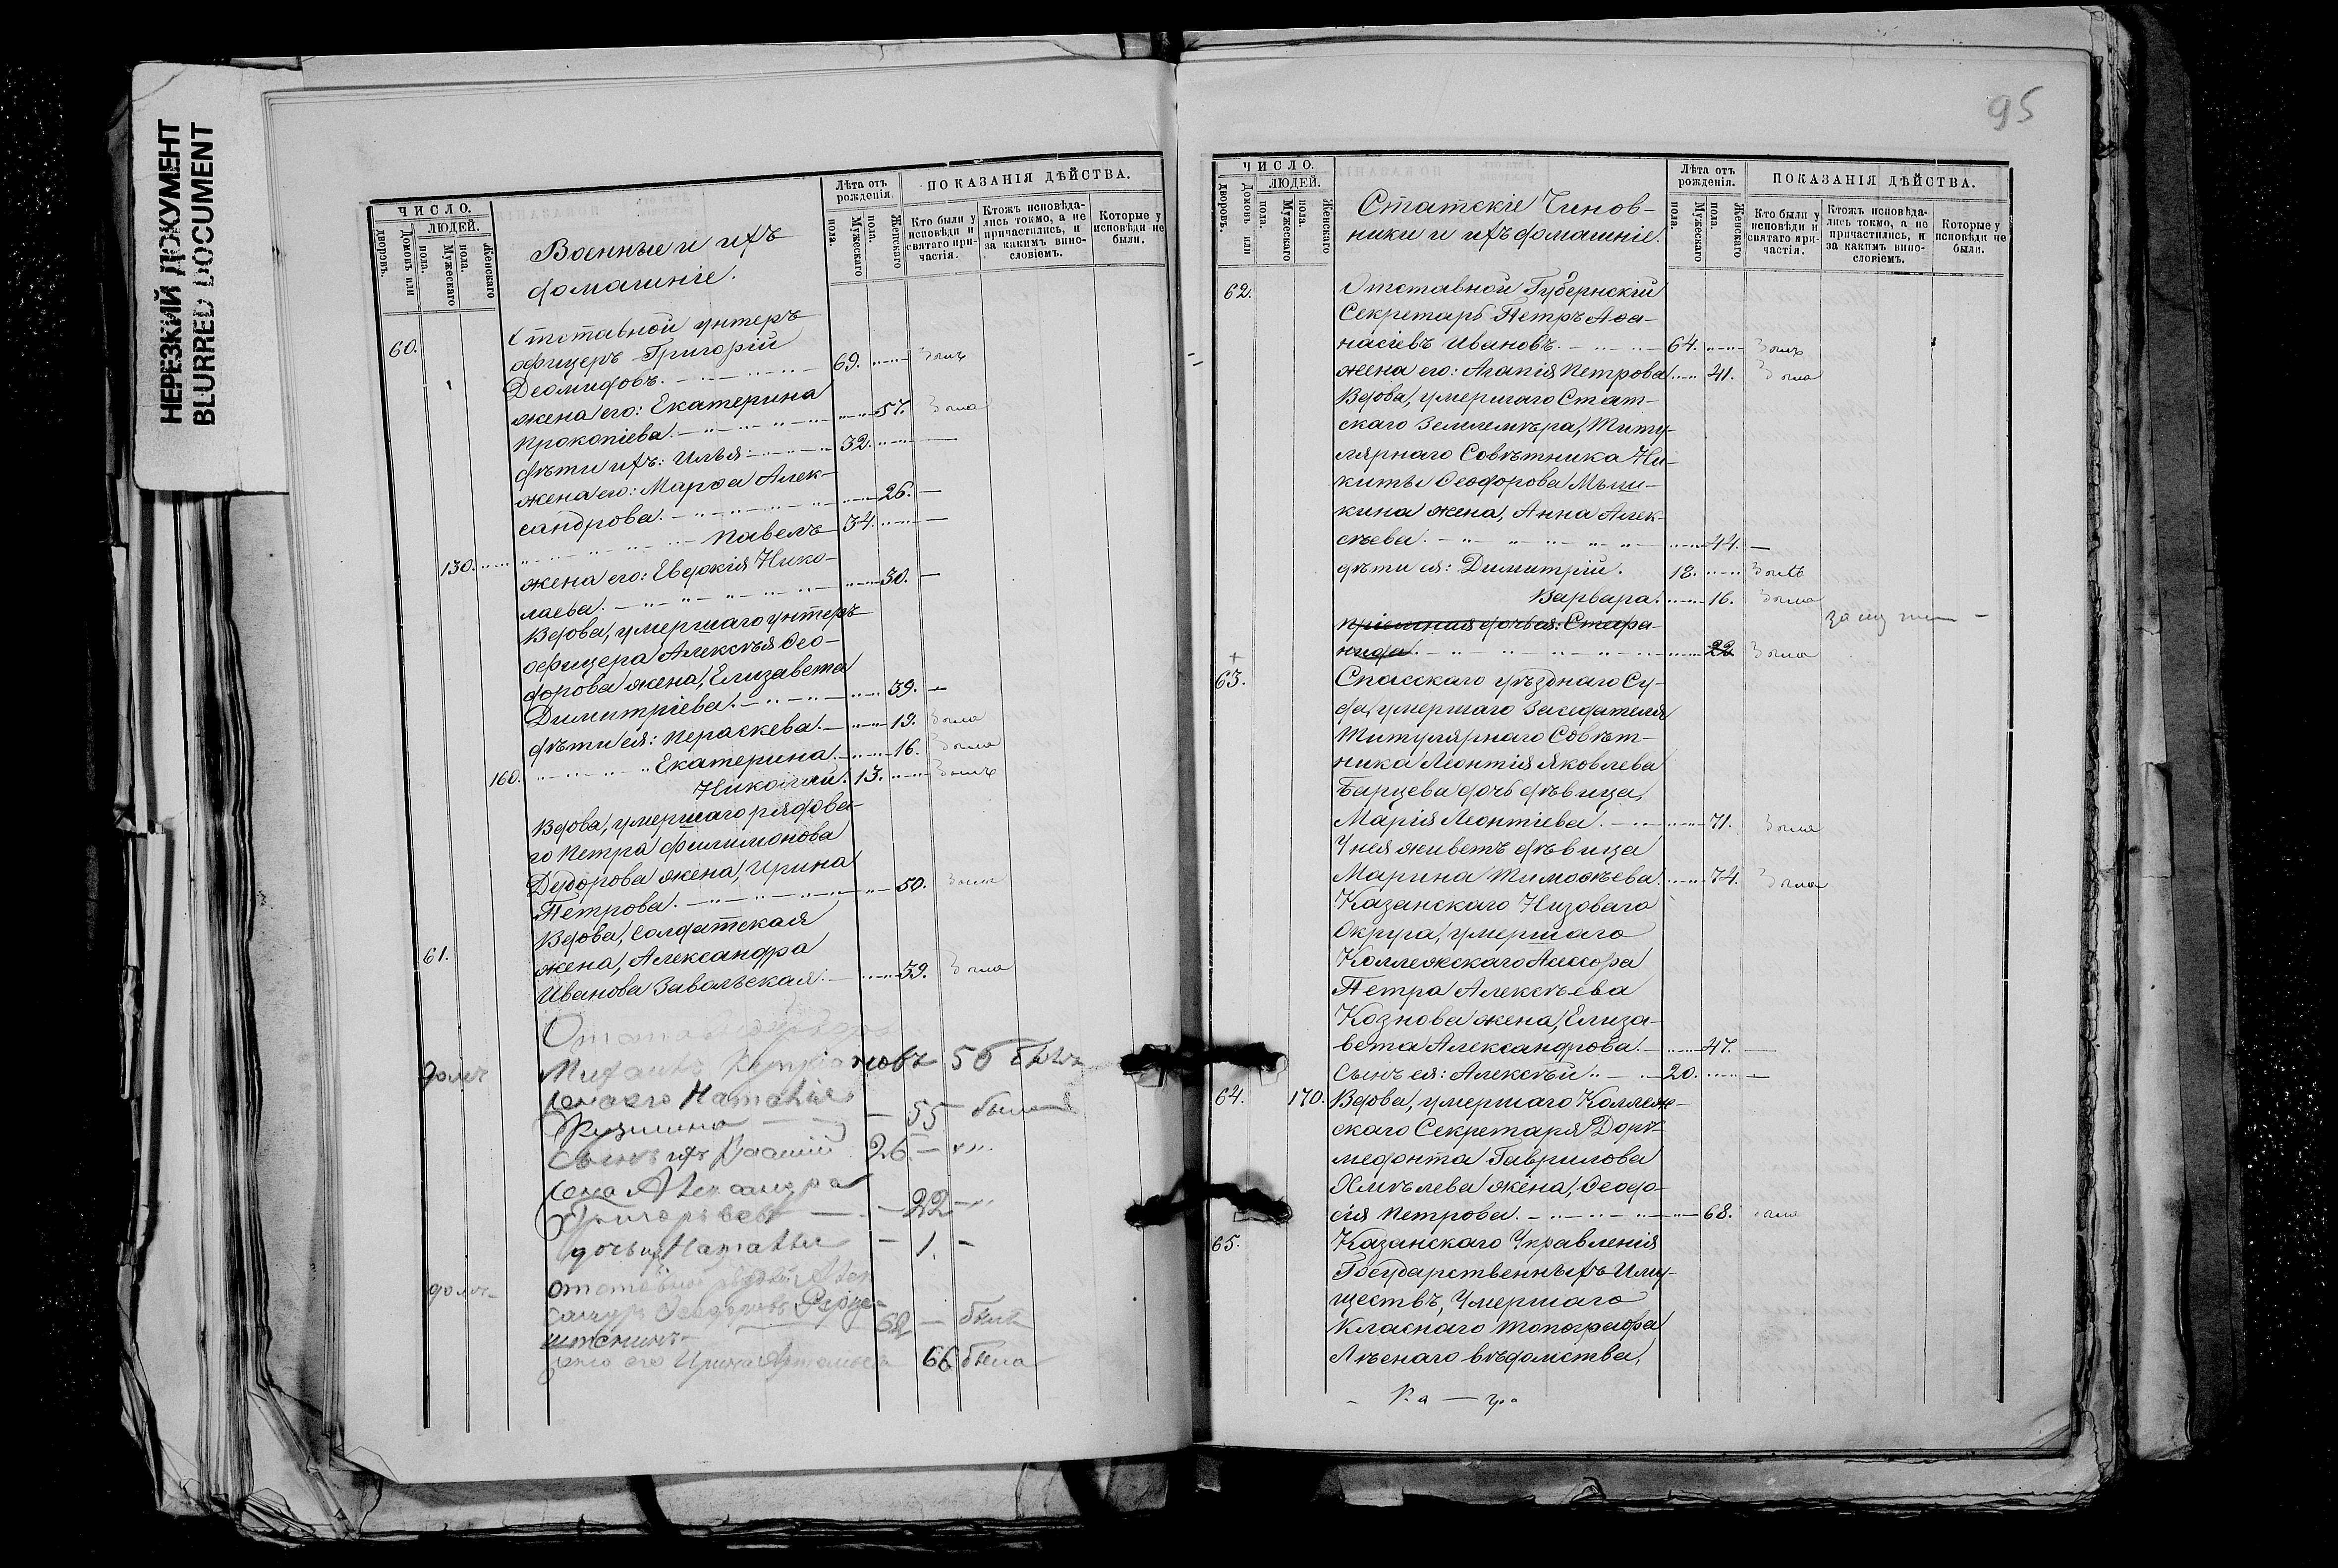 НЕРЕЗКИЙ ДОКУМЕНТ
BLURRED DOCUMENT
ЧИСЛО.
ЛЮДЕЙ.
Домовъ или дворовъ.
Мужескаго пола.
Женскаго пола.
Военные и ихъ
домашніе.
Лѣта отъ рожденія.
Мужескаго пола.
Женскаго пола.
ПОКАЗАНІЯ ДѢЙСТВА.
Кто были у исповѣди и святаго причастія.
Ктожъ исповѣдались токмо, а не причастились, и за какимъ винословіемъ.
Которые у исповѣди не были.
60. Отставной унтеръ
офицеръ Григорій
Деомидовъ. 69. былъ
жена его: Екатерина
Прокопіева. 57. была
дѣти ихъ: Илья 32. —
жена его: Марѳа Алек-
сандрова. 26. —
130. Павелъ 34. —
жена его: Евдокія Нико-
лаева. 30. —
Вдова, умершаго унтеръ
офицера Алексѣя Ѳео-
дорова жена, Елизавета
Димитріева. 39. —
дѣти ея: Параскева. 19. была
160. Екатерина. 16. была
Николай. 13. былъ
Вдова, умершаго рядова-
го Петра Филимонова
Дудорова жена, Ирина
Петрова. 50. была
61. Вдова, солдатская
жена, Александра
Иванова Завальская. 59. была
домъ
новъ 56 былъ
жена его Наталія
Кузмина — 55 была
сынъ ихъ 26. — "
жена Александра
Григорьева — 22 — "
дочь их Наталія — 1. —
домъ отставной Алек
68 — былъ
жена его Ирина 66 была
95
ЧИСЛО.
ЛЮДЕЙ.
Домовъ или дворовъ.
Мужескаго пола.
Женскаго пола.
Статскіе Чинов-
ники и ихъ домашніе.
Лѣта отъ рожденія.
Мужескаго пола.
Женскаго пола.
ПОКАЗАНІЯ ДѢЙСТВА.
Кто были у исповѣди и святаго причастія.
Ктожъ исповѣдались токмо, а не причастились, и за какимъ винословіемъ.
Которые у исповѣди не были.
62. Отставной Губернскій
Секретарь Петръ Аѳа-
насіевъ Ивановъ. 64. былъ
жена его: Агапія Петрова 41. была
Вдова, умершаго Стат-
скаго Землемѣра, Титу-
лярнаго Совѣтника Ни-
киты Ѳеодорова Мыш-
кина жена, Анна Алек-
сѣева. 44. —
дѣти ея: Димитрій. 18. былъ
Варвара. 16. была
пріемная дочь ея: Стефа-
нида. 22 была
63. Спасскаго уѣзднаго Су-
да, умершаго Засѣдателя
Титулярнаго Совѣт-
ника Леонтія Яковлева
Барцева дочь дѣвица,
Марія Леонтіева. 71. была
У нея живетъ дѣвица
Марина Тимоѳѣева. 74. была
Казанскаго Низоваго
Округа, умершаго
Коллежскаго Ассесора
Петра Алексѣева
Кознова жена, Елиза-
вета Александрова. 47. —
Сынъ ея: Алексѣй. 20. —
64. 170. Вдова, умершаго Коллеж-
скаго Секретаря Дори-
медонта Гаврилова
Хмѣлева жена, Ѳеодо-
сія Петрова. 68. была
65. Казанскаго Управленія
Государственныхъ Иму-
ществъ, Умершаго
Класнаго топографа
Лѣснаго вѣдомства,